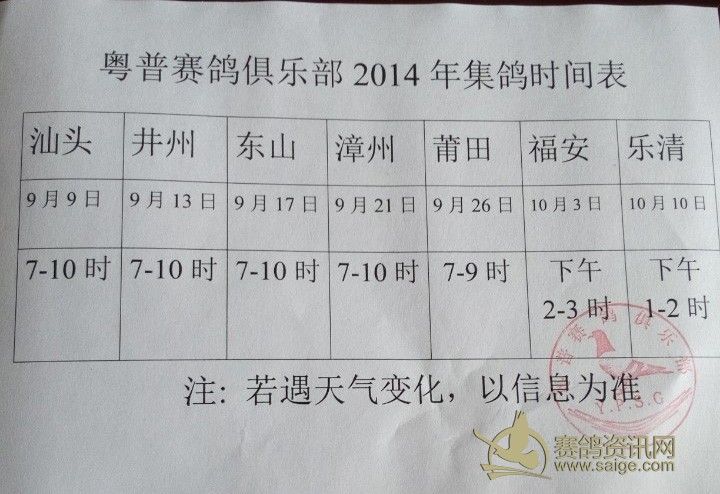 粤普赛鸽俱乐部 2014 年集鸽时间表
汕头 井州 东山 漳州 莆田 福安 乐清
9 月 9 日 9 月 13 日 9 月 17 日 9 月 21 日 9 月 26 日 10 月 3 日 10 月 10 日
7-10 时 7-10 时 7-10 时 7-10 时 7-9 时 下午 2-3 时 下午 1-2 时
注: 若遇天气变化，以信息为准
普赛鸽俱乐部
Y.P.S.G
赛鸽资讯网
www.saige.com